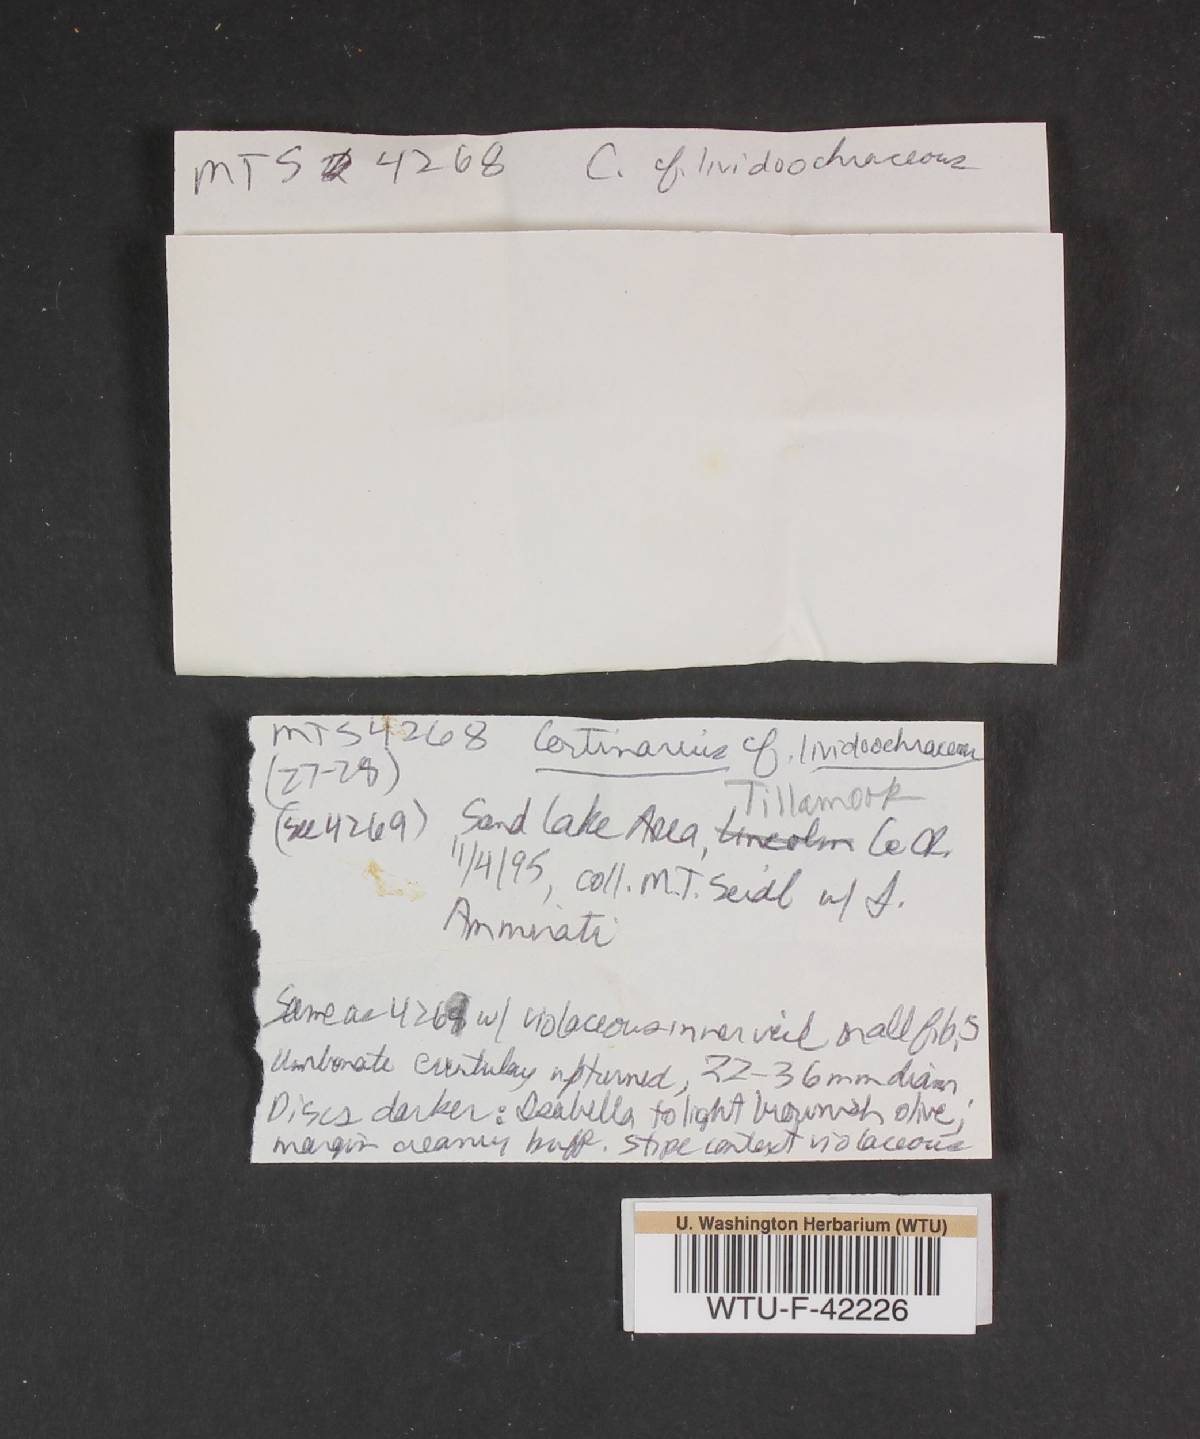 MTS 4268 C. cf. lividoochraceous
MTS 4268 Cortinarius cf. lividoochraceous
(27-28)
(see 4269) Sand Lake Area, Lincoln Tillamook Co OR.
11/4/95, coll. M.T. Seidl w/ J.
Ammirati
Same as 4269 w/ violaceous inner veil, small frb,s
Umbonate eventually upturned, 22-36 mm diam
Discs darker: Isabella to light brownish olive;
margin creamy buff. Stipe context violaceous
U. Washington Herbarium (WTU)
WTU-F-42226